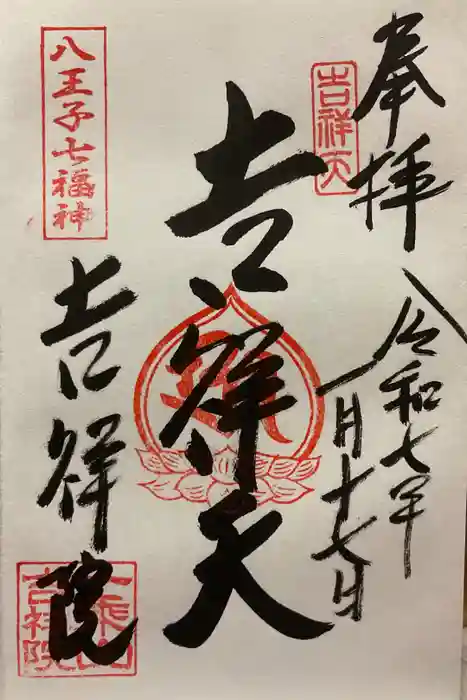 奉拝
令和七年
一月十七日
吉祥天
吉祥天
八王子七福神
吉祥院
吉祥院